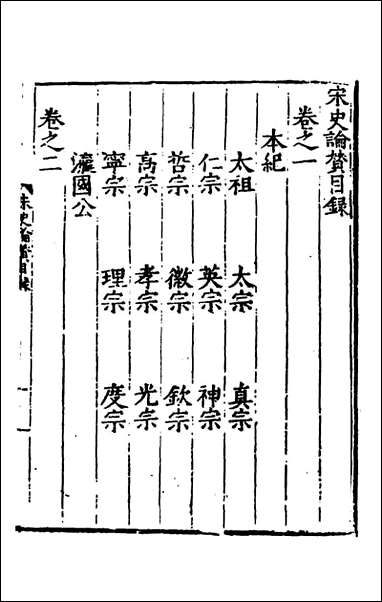 宋史論贊目録
卷之一
本紀
太祖 太宗 真宗
仁宗 英宗 神宗
哲宗 徽宗 欽宗
高宗 孝宗 光宗
寧宗 理宗 度宗
瀛國公
卷之二
宋史論贊目録